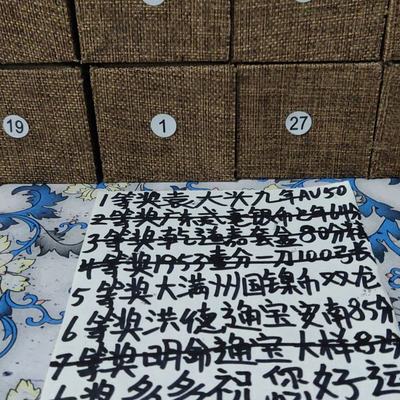 19 1 27
1等奖袁大头九年AU50
2等奖广东贰毫银币年64分
3等奖套金80分
4等奖1953壹分一刀100号长
5等奖大满州国镍币双龙
6等奖洪德通宝安南85分
7等奖明命通宝大样82分
奖多多祝你好运